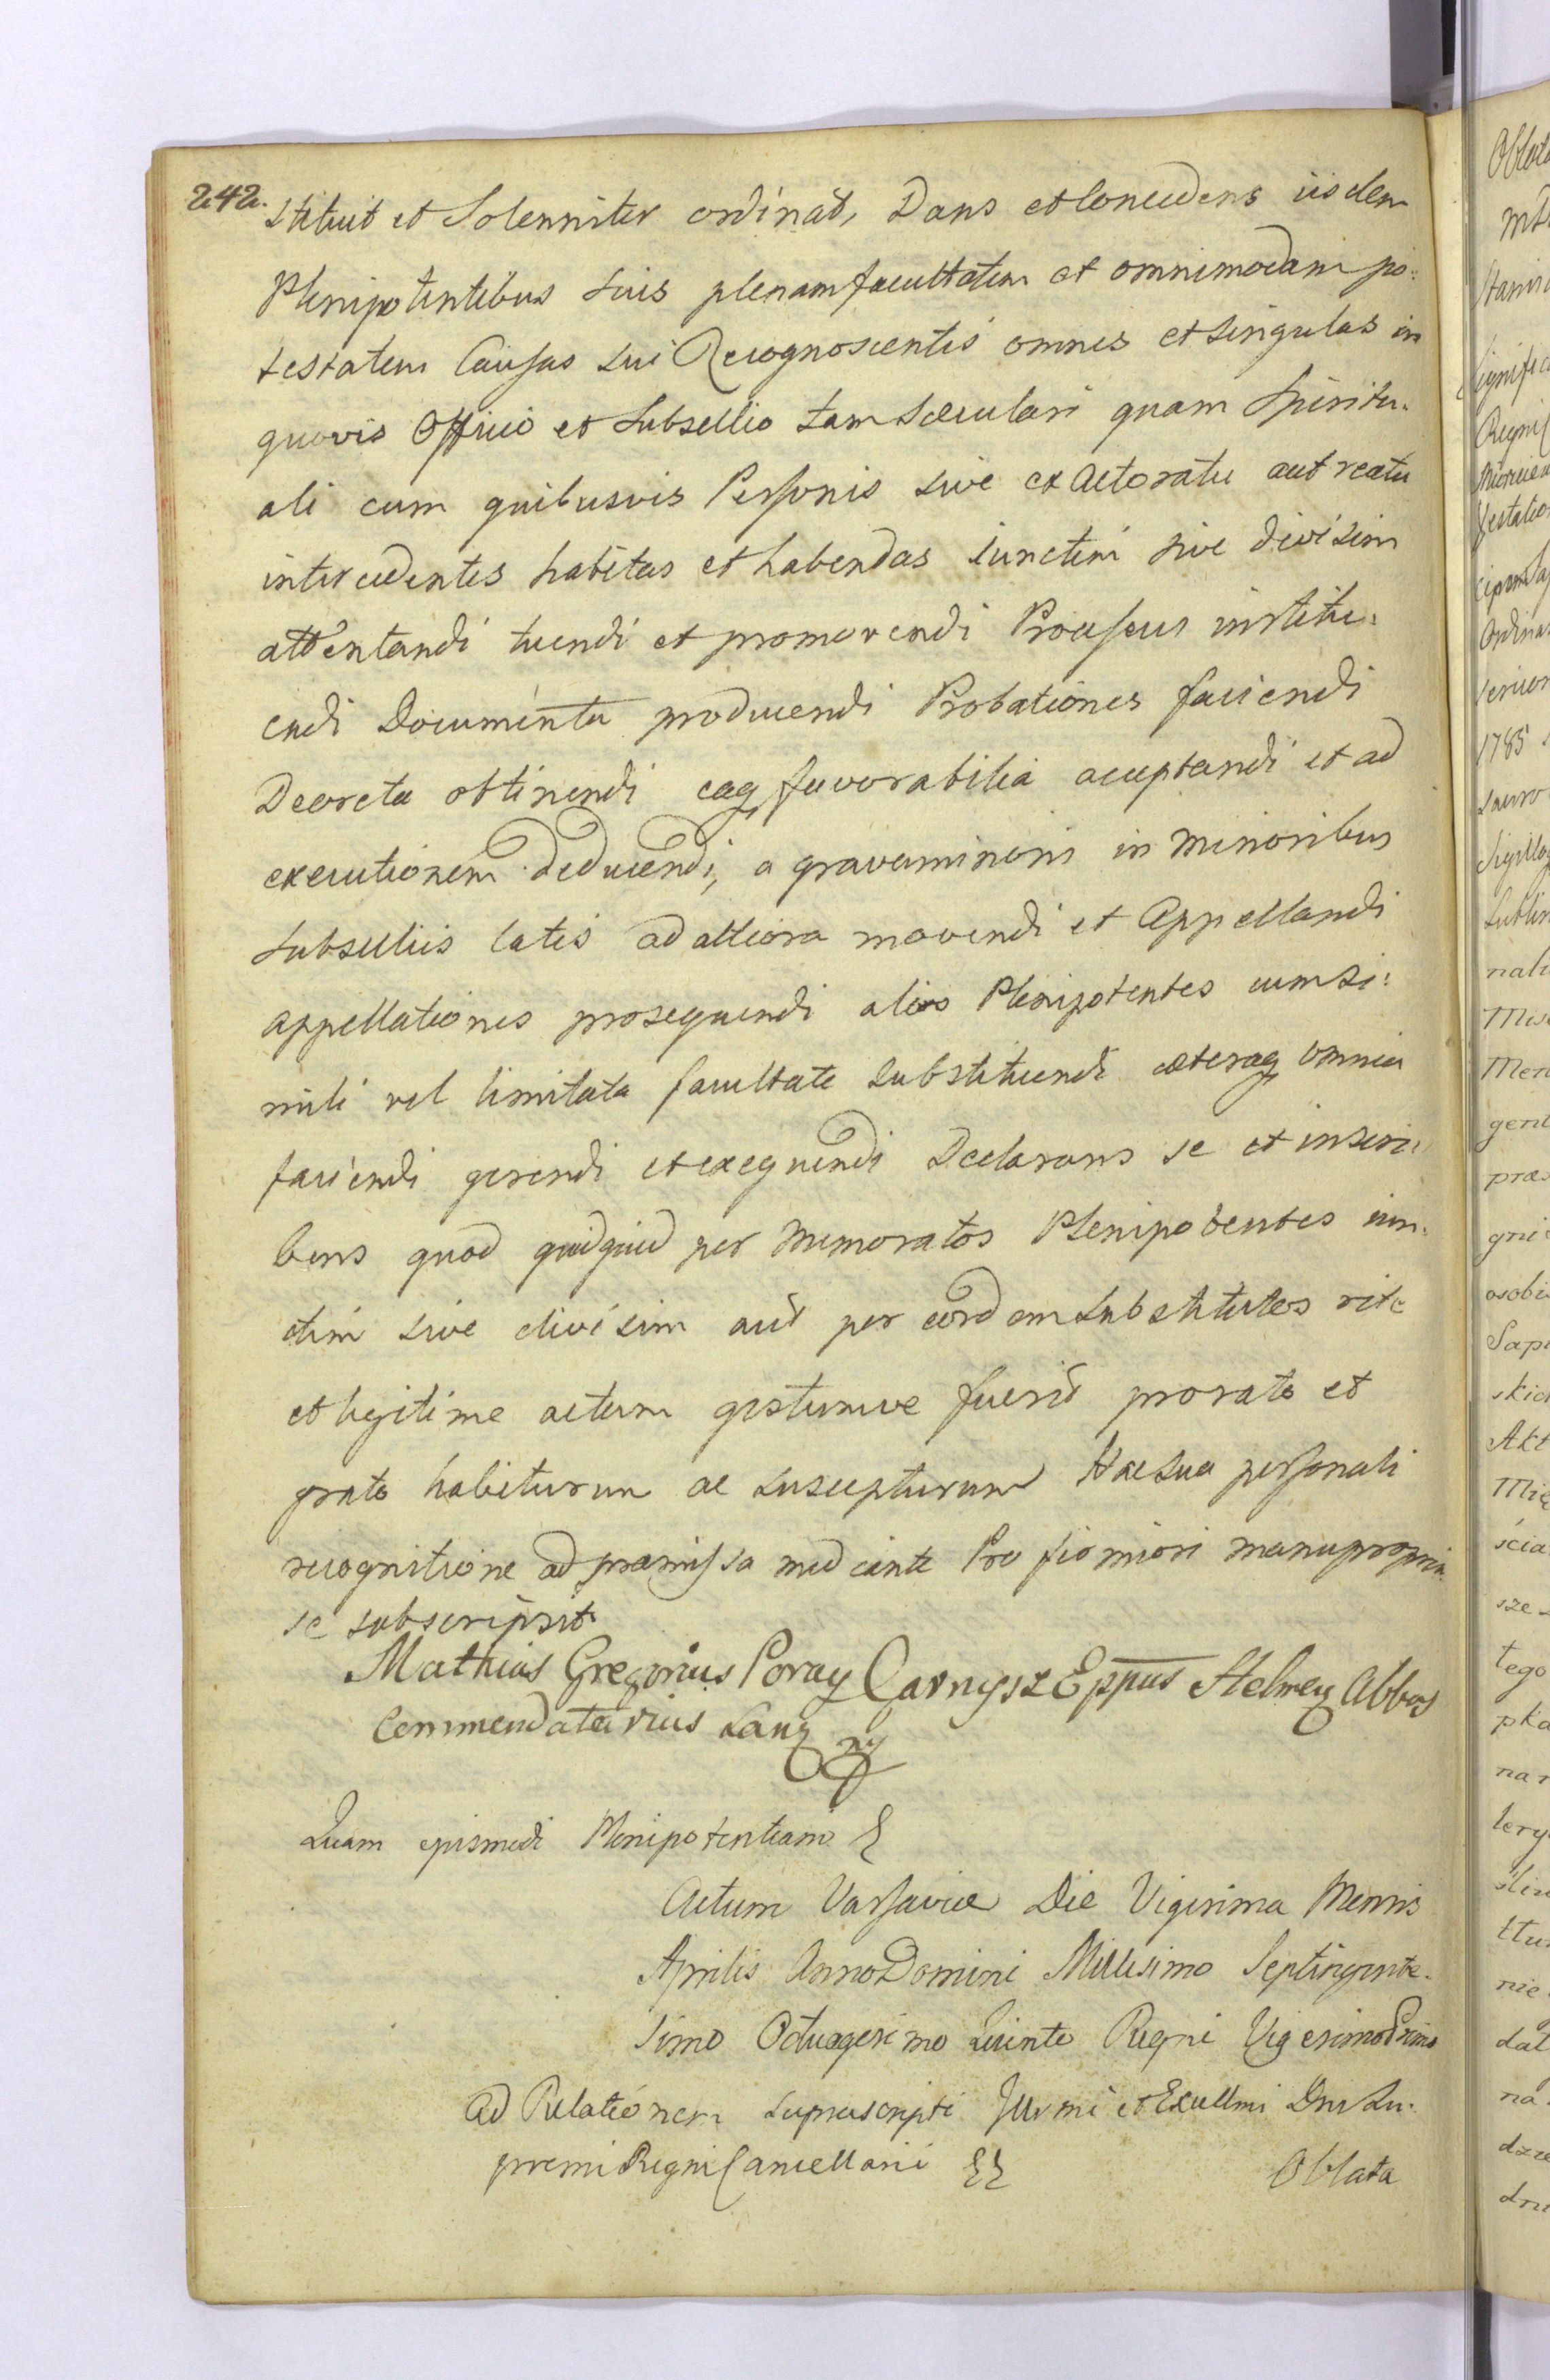 242.
stituit et Solenniter ordinat, Dans et Concedens iisdem
Plenipotentibus suis plenam facultatem et omnimodam po:
testatem Causas sui Recognoscentis omnes et singulas in
quovis Officio et Subsellio tam Sæculari quam Spiritu-
ali cum quibusvis Personis sive ex Actoratu aut reatu
intercedentes habitas et habendas iunctim sive divisim
attentandi tuendi et promovendi Processus institu:
endi Documenta producendi Probationes faciendi
Decreta obtinendi eaq favorabilia acceptandi et ad
executionem deducendi, a gravaminoris in minoribus
Subselliis latis ad altiora movendi et Appellandi
appellationes prosequendi alios Plenipotentes cum si:
mili vel limitata facultate substituendi cæteraq omnia
faciendi gerendi et exequendi Declarans se et inscri:
bens quod quidquid per memoratos Plenipotentes iun-
ctim sive divisim aut per eosdem substitutos rite
et legitime actum gestumve fuerit pro rato et
grato habiturum ac suscepturum Hac sua personali
recognitione ad præmissa mediante Pro firmiori manu propria
se subscripsit
Mathias Gregorius Poray Garnysz Eppus Helmen Abbas
Commendatarius Landen
Quam ejusmodi Plenipotentiam
Actum Varsaviæ Die Vigesima Mensis
Aprilis Anno Domini Millesimo Septingente-
simo Octuagesimo Quinto Regni Vigesimo Primo
Ad Relationem suprascripti Illrmi et Excellmi Dni Su-
premi Regni Cancellarii
Oblata
1785